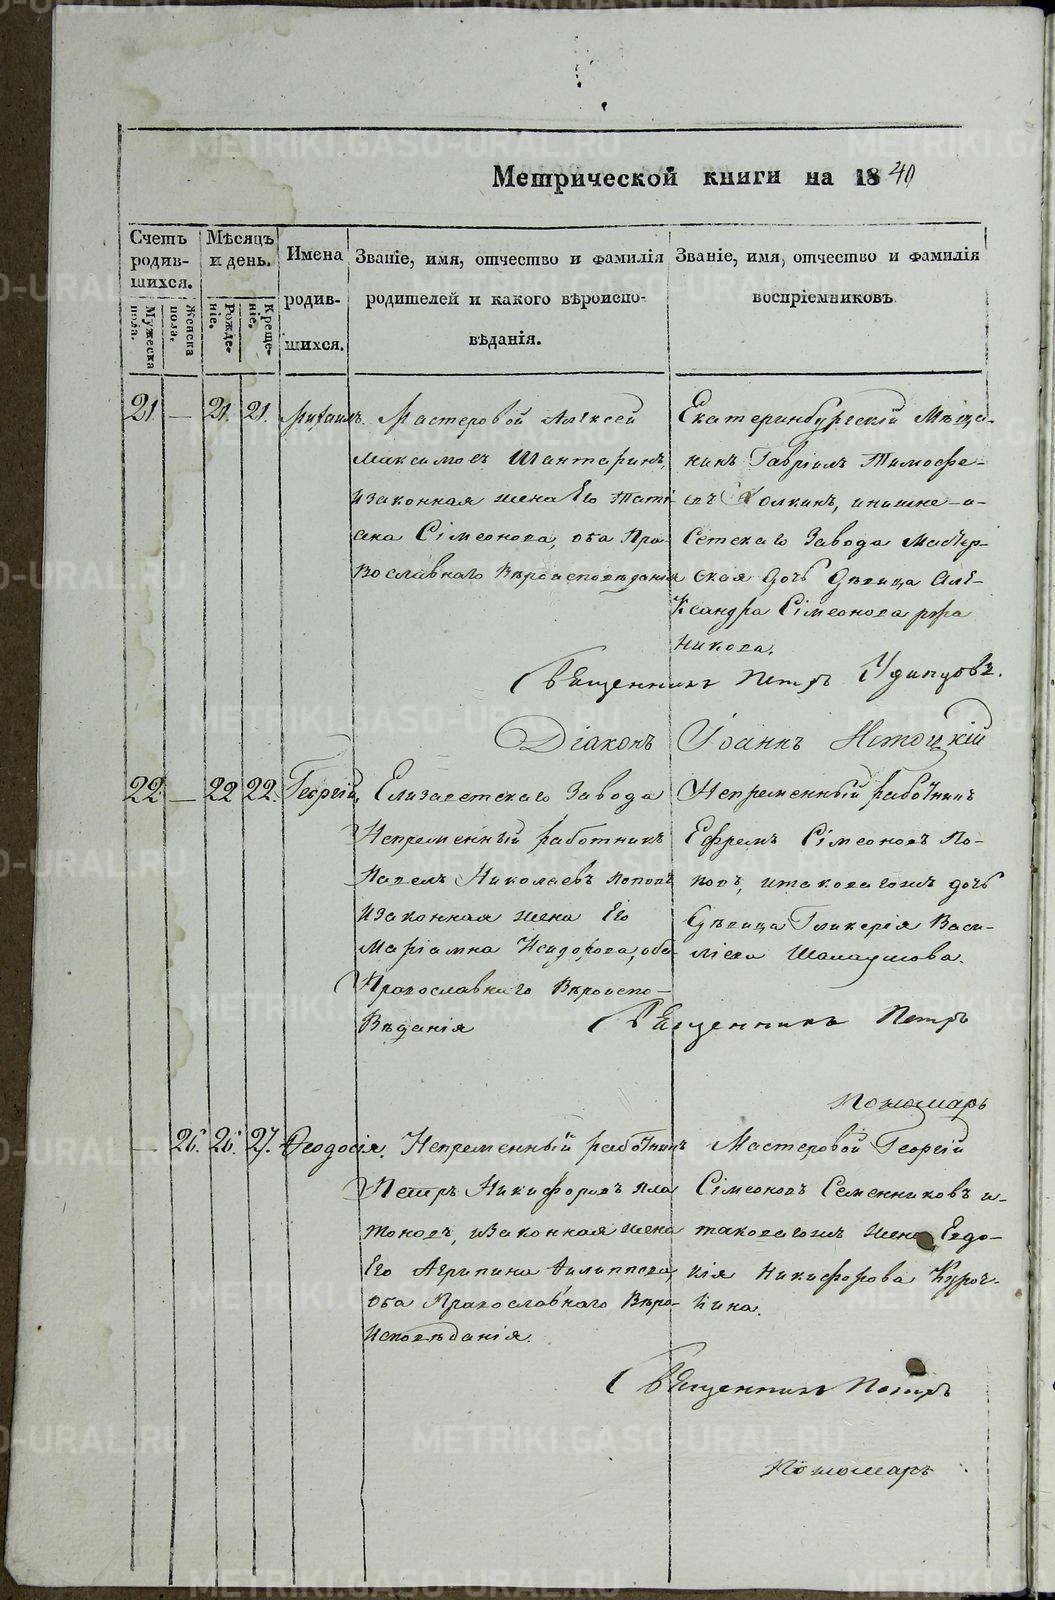 Метрической книги на 1840
Счетъ родив-шихся.
Мужеска пола.
Женска пола.
Мѣсяцъ и день.
Рожде-ніе.
Креще-ніе.
Имена родив-шихся.
Званіе, имя, отчество и фамилія
родителей и какого вѣроиспо-
вѣданія.
Званіе, имя, отчество и фамилія
воспріемниковъ
21 — 21. 21. Михаилъ.
Мастеровой Алексей
Максимовъ Шантаринъ,
и законная жена Его Тати-
ана Сімеонова, оба Пра-
вославнаго Вѣроисповѣданія
Екатеринбургскій Мѣща-
нинъ Гавріилъ Тимофе-
евъ Холкинъ, и нижне-и-
сетскаго Завода Мастер-
ская дочь Дѣвица Але-
ксандра Сімеонова
никова.
Священникъ Петръ Удинцовъ.
Діаконъ Іоаннъ Истоцкій
22. — 22 22. Георгій,
Елизаветскаго Завода
Непременный работникъ
Павелъ Николаевъ Поповъ
и законная жена Его
Маріамна Исидорова, оба
Православнаго Вѣроиспо-
вѣданія
Непременный работникъ
Ефремъ Сімеоновъ По-
повъ, и таковагожъ дочь
Дѣвица Гликерія Васи-
лиева Шалаумова.
Священникъ Петръ
Пономарь
— 26. 26. 27. Ѳеодосія.
Непременный работникъ
Петръ Никифоровъ Пла
тоновъ, и Законная жена
Его Агрипина Филиппова,
оба Православнаго Вѣро-
исповѣданія.
Мастеровой Георгій
Сімеоновъ Семенниковъ и-
таковагожъ жена Евдо-
кія Никифорова Куроч-
кина.
Священникъ Петръ
Пономарь
METRIKI.GASO-URAL.RU